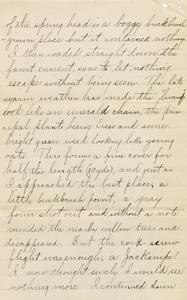 of the spring head is a boggy buckbrush
grown place but it contained nothing.
I then waded straight down the
faint current so as to let nothing
escape without being seen. The late
warm weather has made the swamp
look like an emerald chain, the prin-
cipal plants being cress and some
bright green weed looking like young
oats. This forms a fine cover for
half the length (50 yds), and just as
I approached the best place, a
little buckbrush point, a gray
form shot out and without a note
rounded the nearby willow trees and
disappeared. But the cork-screw
flight was enough, a Jacksnipe!
I now thought surely I would see
nothing more. I continued down